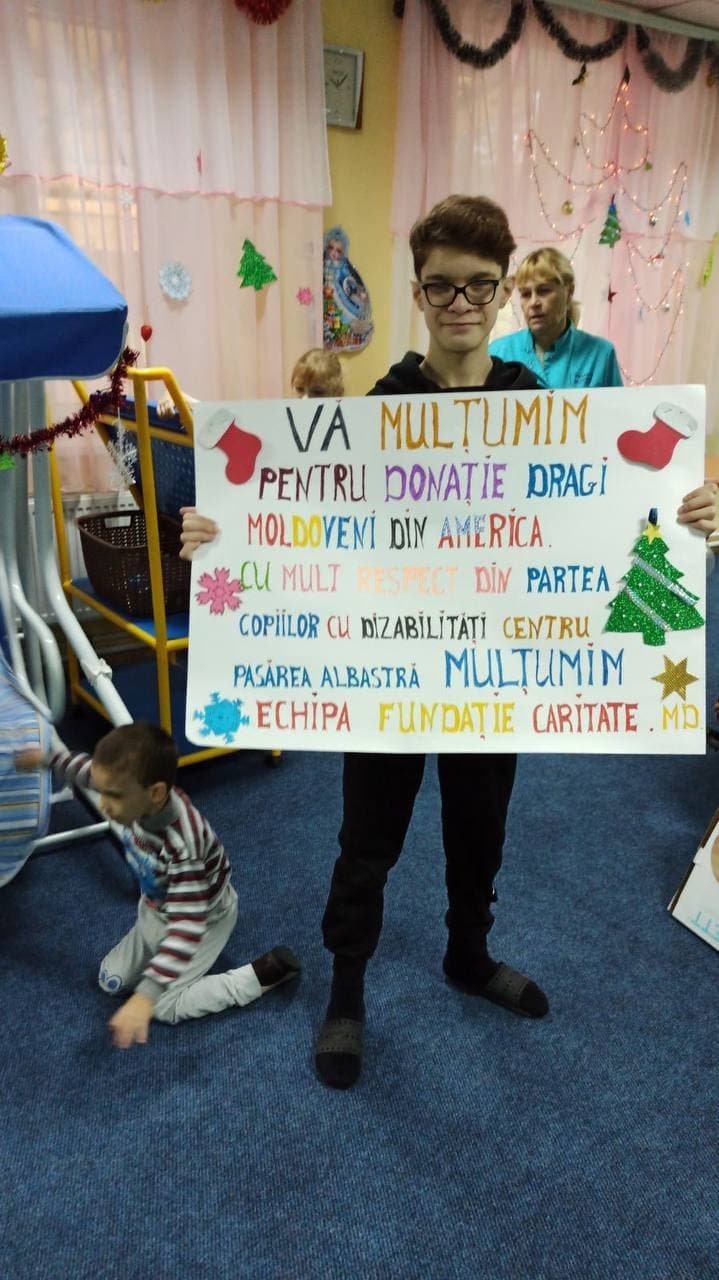 VĂ MULȚUMIM
PENTRU DONAȚIE DRAGI
MOLDOVENI DIN AMERICA.
CU MULT RESPECT DIN PARTEA
COPIILOR CU DIZABILITĂȚI CENTRU
PASĂREA ALBASTRĂ MULȚUMIM
ECHIPA FUNDAȚIE CARITATE. MD